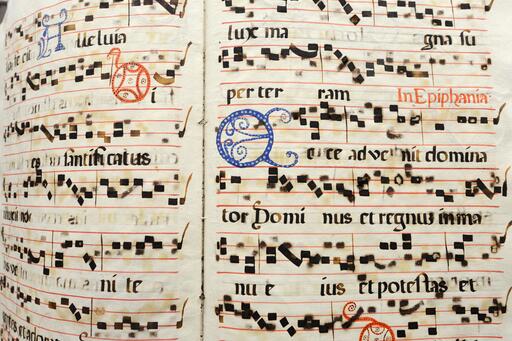 Alleluia
santificatus
ni te
lux ma gna su
per ter ram In Epiphania
Ecce advenit domina
tor Domi nus et regnus in ma
nu e ius et potestas et